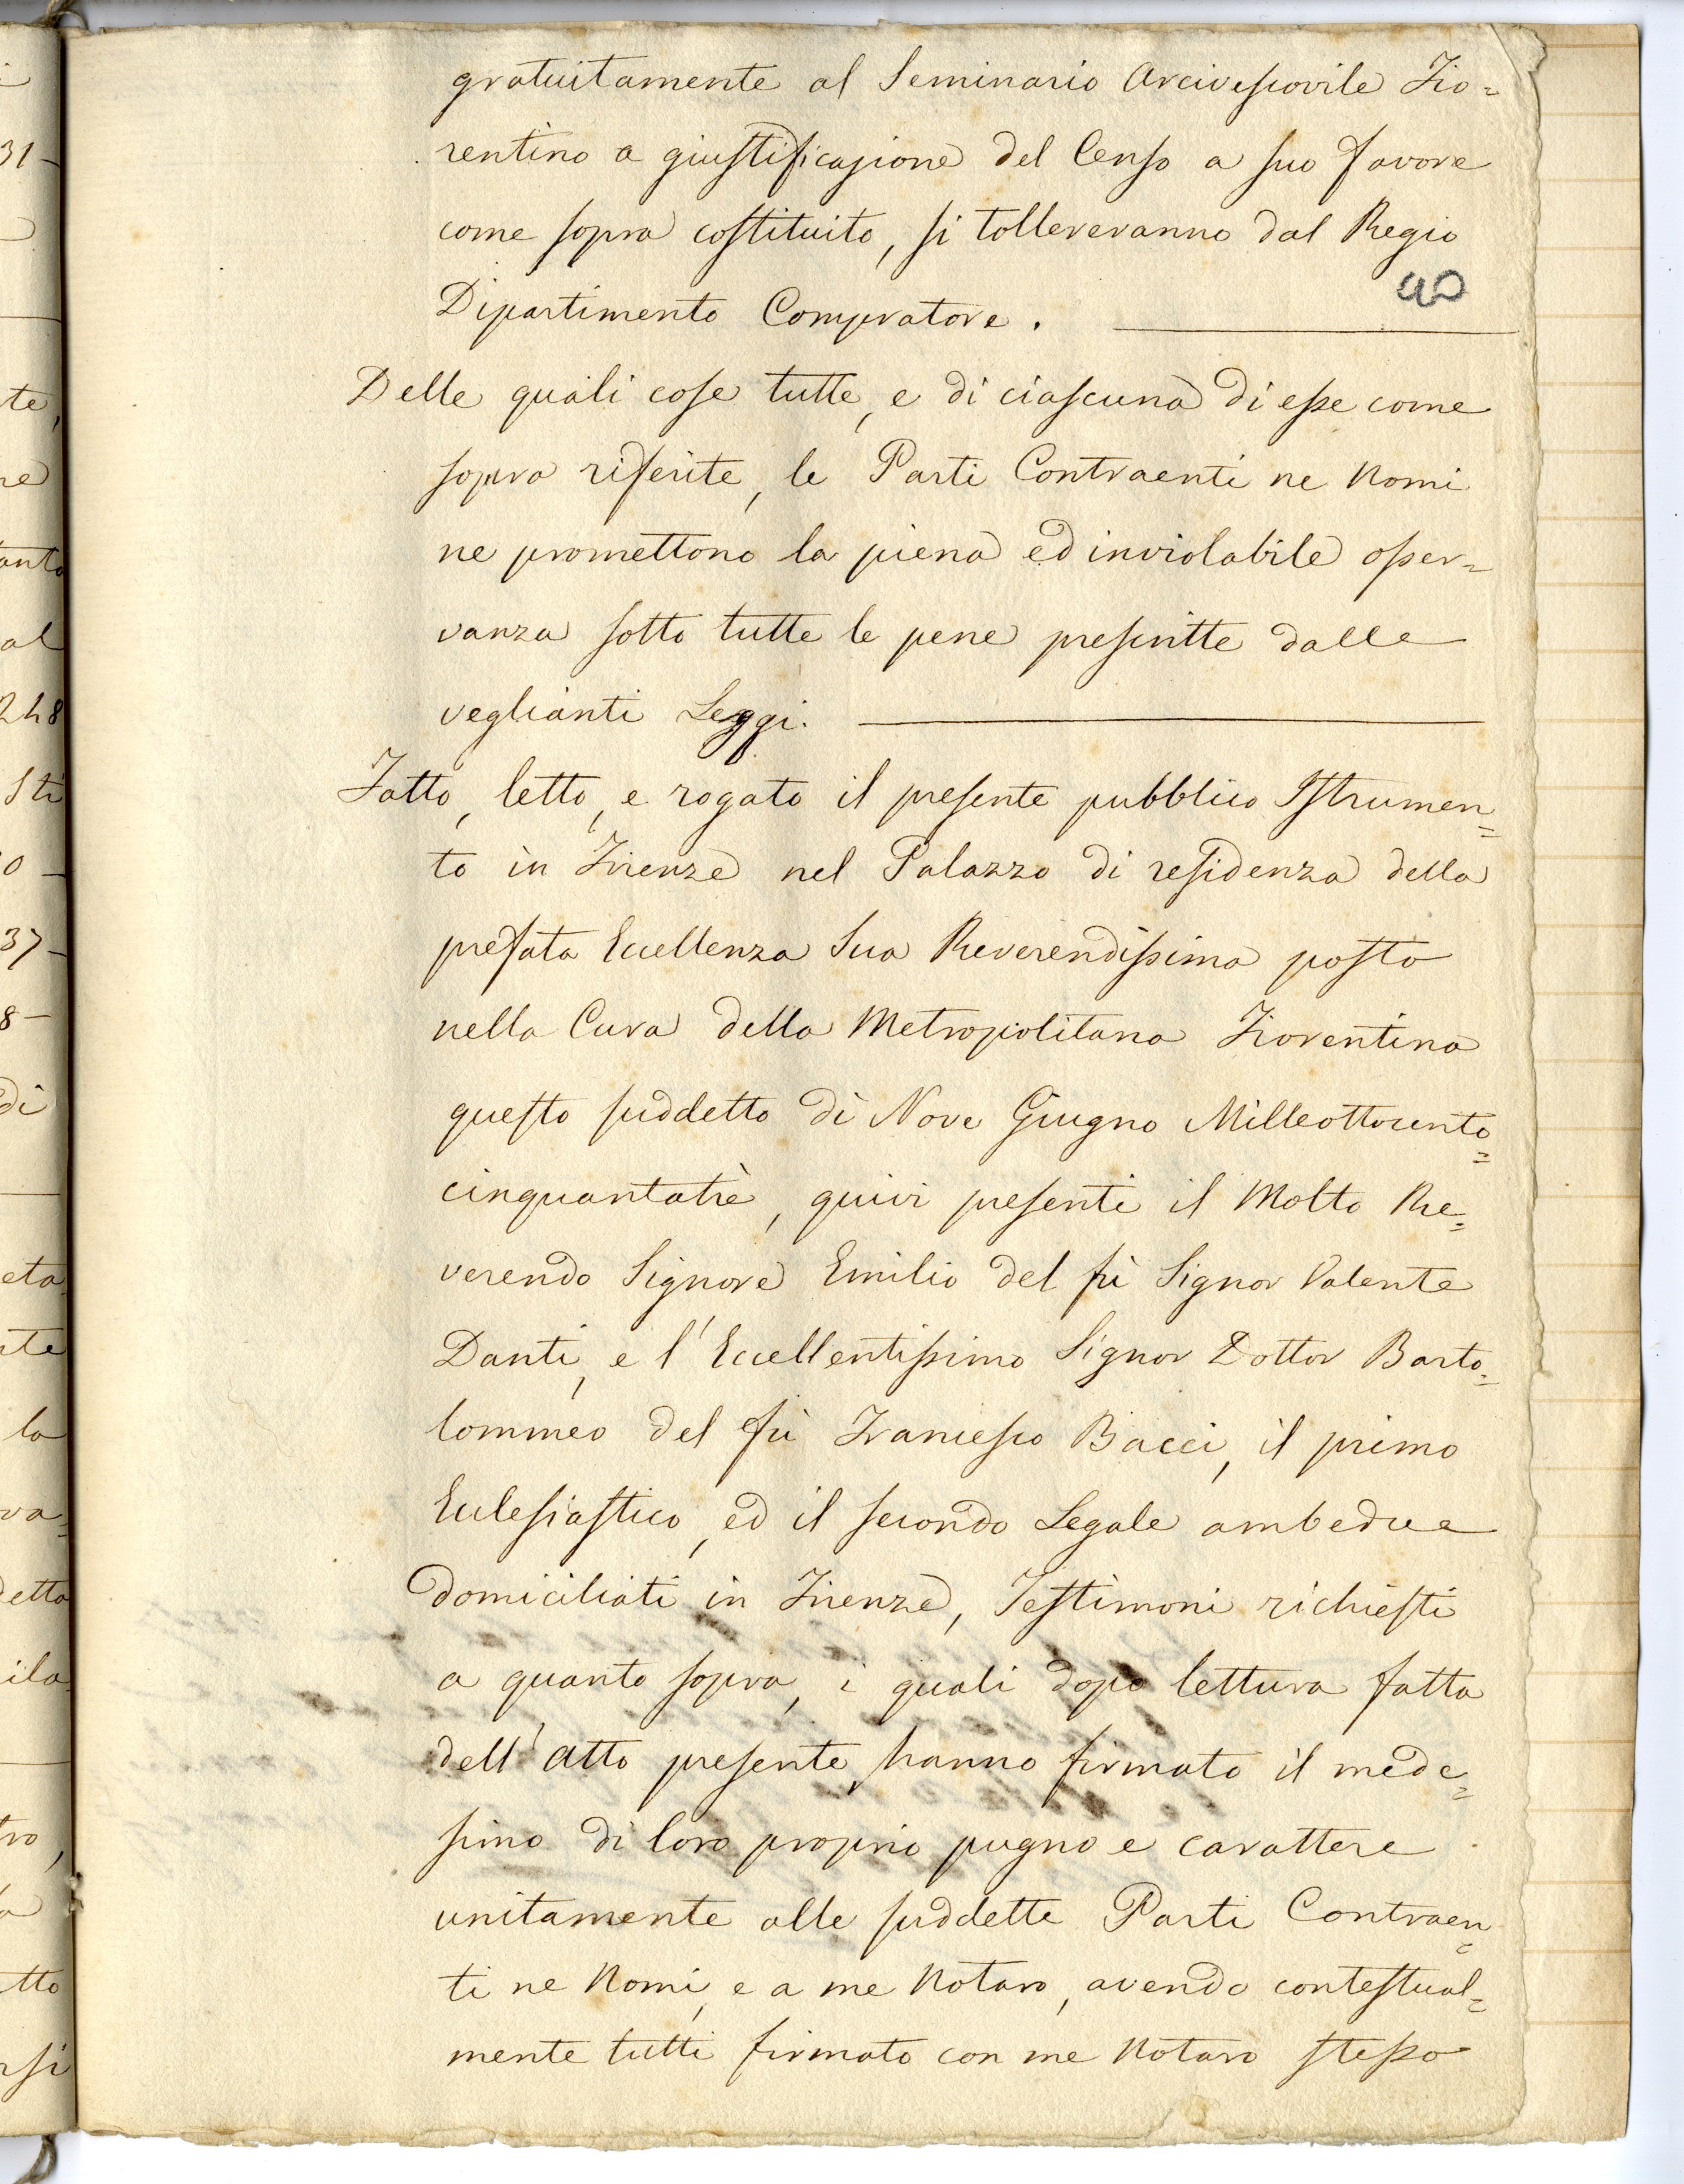 gratuitamente al Seminario Arcivescovile Fio=
rentino a giustificazione del Censo a suo favore
come sopra costituito, si tollereranno dal Regio
Dipartimento Compratore.
Delle quali cose tutte, e di ciascuna di esse come
sopra riferite, le Parti Contraenti ne Nomi
ne promettono la piena ed inviolabile osser=
vanza sotto tutte le pene prescritte dalle
veglianti Leggi.
Fatto, letto, e rogato il presente pubblico Istrumen=
to in Firenze nel Palazzo di residenza della
prefata Eccellenza Sua Reverendissima posto
nella Cura della Metropolitana Fiorentina
questo suddetto dì Nove Giugno Milleottocento=
cinquantatrè, quivi presenti il Molto Re=
verendo Signore Emilio del fù Signor Valente
Danti, e l'Eccellentissimo Signor Dottor Barto=
lommeo del fù Francesco Bacci, il primo
Ecclesiastico, ed il secondo Legale ambedue
domiciliati in Firenze, Testimoni richiesti
a quanto sopra, i quali dopo lettura fatta
dell'Atto presente, hanno firmato il mede=
simo di loro proprio pugno e carattere
unitamente alle suddette Parti Contraen=
ti ne Nomi, e a me Notaro, avendo contestual=
mente tutti firmato con me Notaro stesso
31-
te,
ne
anto
al
248
Sti
0 -
37-
8-
di
eta
te
la
va=
detta
ila
tro,
tto
rsi